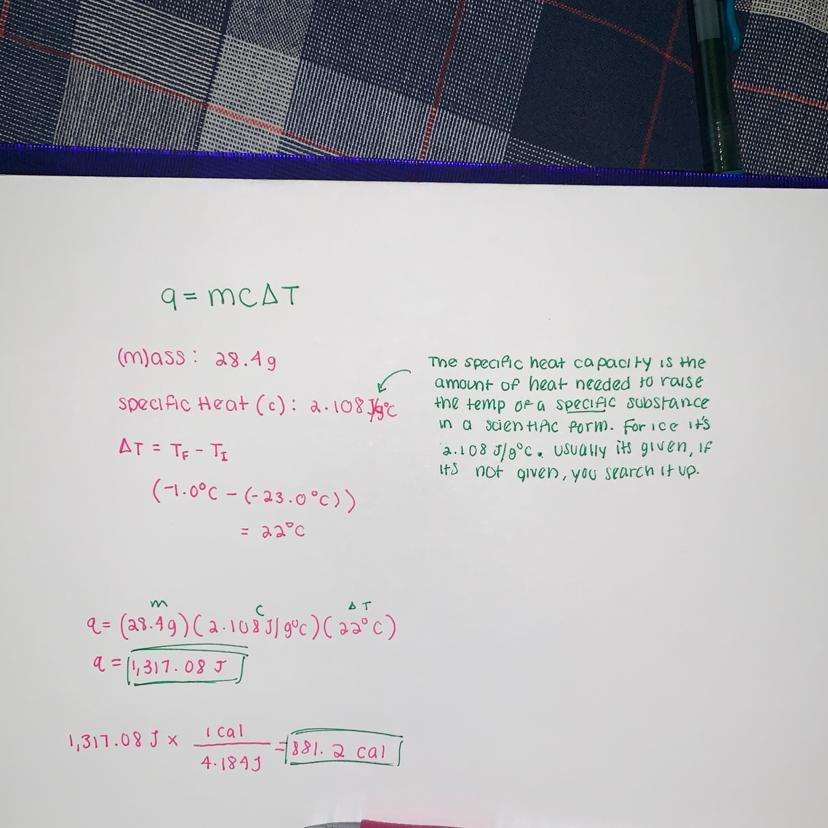 q = mcΔT
(m)ass: 28.4g
specific Heat (c): 2.108 J/g°C
ΔT = TF - TI
(-1.0°C - (-23.0°C))
= 22°C
The specific heat capacity is the
amount of heat needed to raise
the temp of a specific substance
in a scientific form. For ice it's
2.108 J/g°C. usually its given, if
it's not given, you search it up.
m c ΔT
q = (28.4g)(2.108 J/g°C)(22°C)
q = 1,317.08 J
1,317.08 J x 1 cal / 4.184J = 881.2 cal